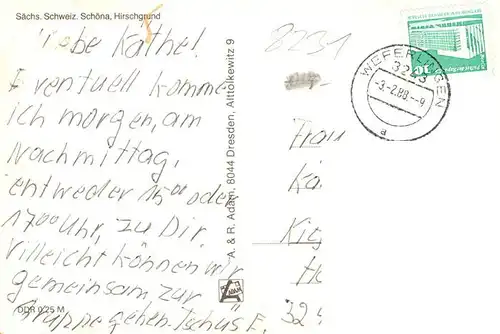 Sächs. Schweiz. Schöna, Hirschgrund
Liebe Käthe!
Eventuell komme
ich morgen, am
Nachmittag,
entweder 15⁰⁰ oder
17⁰⁰ Uhr, zu Dir.
Villeicht können wir
gemeinsam zur
Gruppe gehen. Tschüs E.
DDR 0,25 M
A. & R. Adam, 8044 Dresden, Alttolkewitz 9
ADAM
8231
WEFERLINGEN
3233
-3.-2.89.--9
a
10
Frau
Kä
324